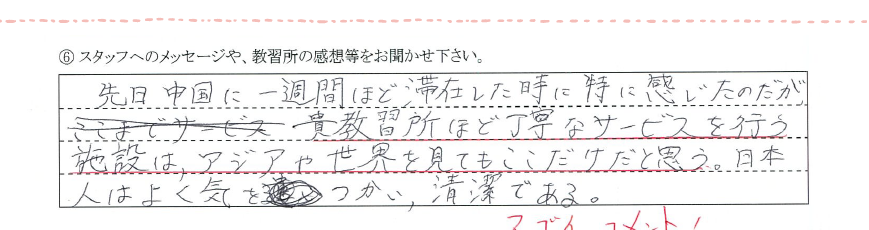 ⑥ スタッフへのメッセージや、教習所の感想等をお聞かせ下さい。
先日中国に一週間ほど滞在した時に特に感じたのだが、
ここまでサービス 貴教習所ほど丁寧なサービスを行う
施設は、アジアや世界を見てもここだけだと思う。日本
人はよく気をつかい、清潔である。
スゴイ コメント!